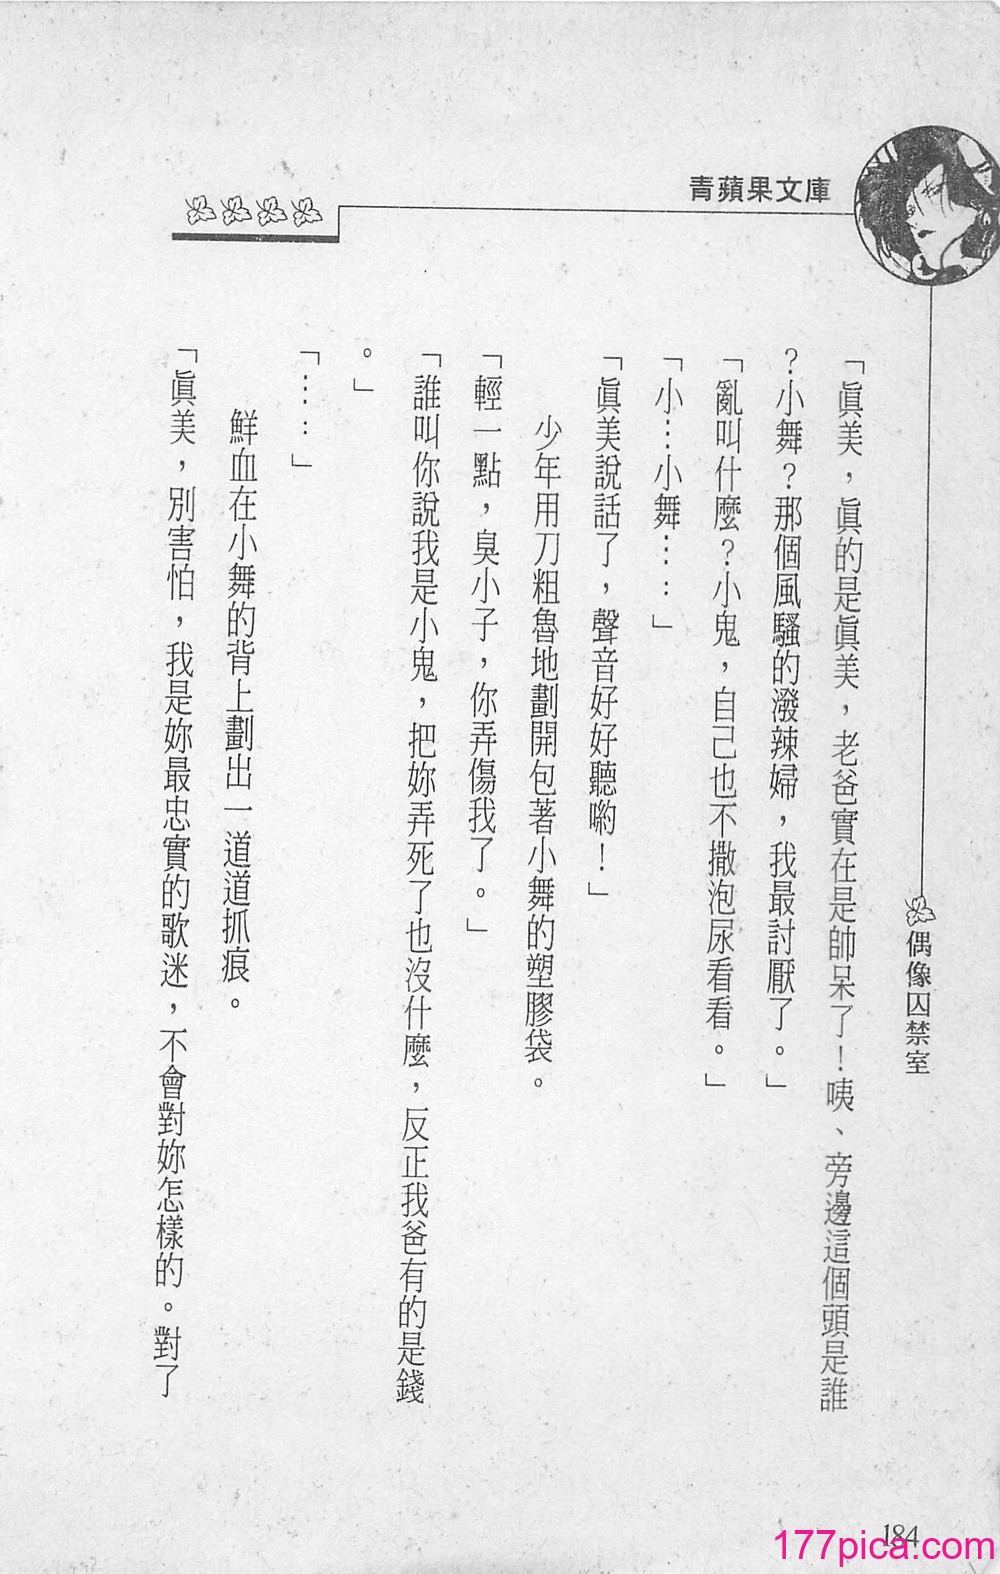 青蘋果文庫
偶像囚禁室
「眞美，眞的是眞美，老爸實在是帥呆了！咦、旁邊這個頭是誰
？小舞？那個風騷的潑辣婦，我最討厭了。」
「亂叫什麼？小鬼，自己也不撒泡尿看看。」
「小…小舞……」
「眞美說話了，聲音好好聽喲！」
少年用刀粗魯地劃開包著小舞的塑膠袋。
「輕一點，臭小子，你弄傷我了。」
「誰叫你說我是小鬼，把妳弄死了也沒什麼，反正我爸有的是錢
。」
「……」
鮮血在小舞的背上劃出一道道抓痕。
「眞美，別害怕，我是妳最忠實的歌迷，不會對妳怎樣的。對了
184
177pica.com